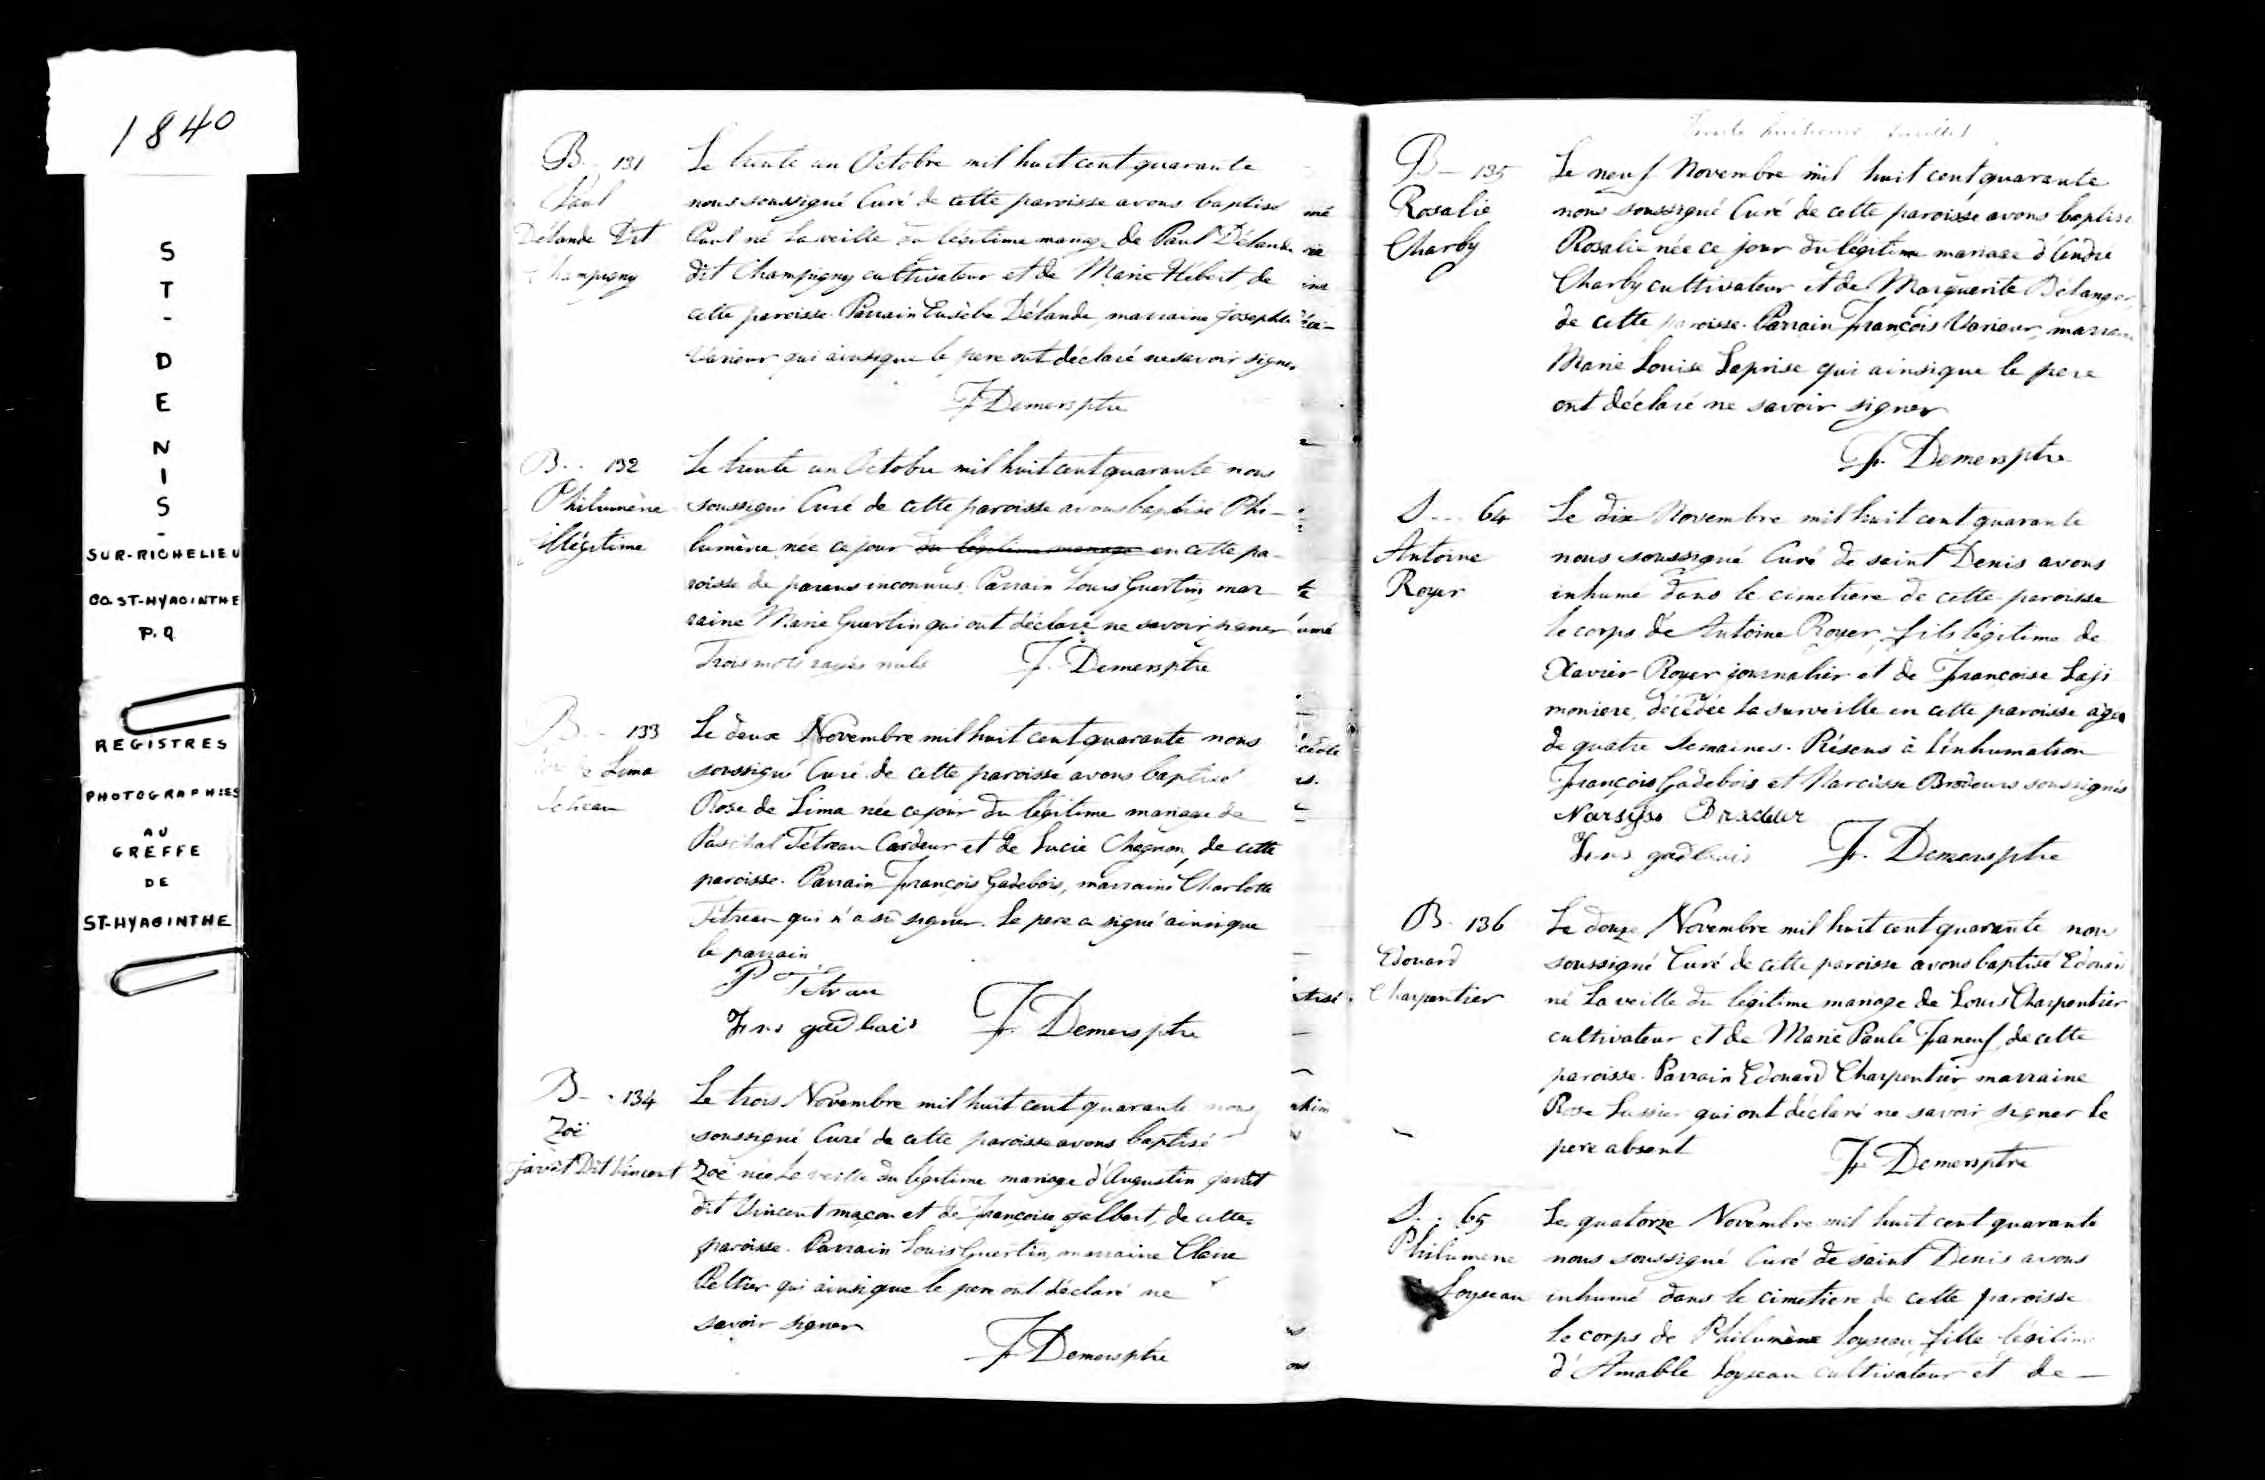 1840
S
T
-
D
E
N
I
S
-
SUR-RICHELIEU
CO. ST-HYACINTHE
P.Q.
REGISTRES
PHOTOGRAPHIES
AU
GREFFE
DE
ST-HYACINTHE
B - 131
Paul
Délande Dit
Champigny
Le trente un Octobre mil huit cent quarante
nous soussigné Curé de cette paroisse avons baptisé
Paul né la veille du légitime mariage de Paul Délande
dit Champigny cultivateur et de Marie Hébert, de
cette paroisse. Parrain Eusèbe Délande, marraine Josephte
Varieur qui ainsi que le pere ont déclaré ne savoir signer
F Demers ptre
B - - 132
Philumène
illégitime
Le trente un Octobre mil huit cent quarante nous
soussigné Curé de cette paroisse avons baptisé Phi-
lumène, née ce jour du légitime mariage en cette pa-
roisse de parens inconnus. Parrain Louis Guertin, mar-
raine Marie Guertin qui ont déclaré ne savoir signer
Trois mots rayés nuls
F. Demers ptre
B - - 133
Lima
Tetreau
Le deux Novembre mil huit cent quarante nous
soussigné Curé de cette paroisse avons baptisé
Rose de Lima née ce jour du légitime mariage de
Paschal Tétreau Cardeur et de Lucie Chagnon, de cette
paroisse. Parrain François Gadebois, marraine Charlotte
Tétreau qui n'a su signer. Le pere a signé ainsi que
le parrain
P Tétrau
Frns gadbois
Fr. Demers ptre
B - - 134
Zoë
Jarret Dit Vincent
Le trois Novembre mil huit cent quarante nous
soussigné Curé de cette paroisse avons baptisé
Zoë née la veille du légitime mariage d'Augustin Jarret
dit Vincent maçon et de Françoise Jalbert, de cette
paroisse. Parrain Louis Guertin, marraine Claire
Peltier qui ainsi que le pere ont déclaré ne
savoir signer
Fr Demers ptre
Trente huitieme
B - 135
Rosalie
Charby
Le neuf Novembre mil huit cent quarante
nous soussigné Curé de cette paroisse avons baptisé
Rosalie née ce jour du légitime mariage d'André
Charby cultivateur et de Marguerite Bélanger,
de cette paroisse. Parrain François Varieur, marraine
Marie Louise Laprise qui ainsi que le pere
ont déclaré ne savoir signer
Fr. Demers ptre
S - - 64
Antoine
Royer
Le dix Novembre mil huit cent quarante
nous soussigné Curé de saint Denis avons
inhumé dans le cimetiere de cette paroisse
le corps de Antoine Royer, fils légitime de
Xavier Royer journalier et de Françoise Laji
moniere, décédée la surveille en cette paroisse agée
de quatre Semaines. Présens à l'inhumation
François Gadebois et Narcisse Brodeurs soussignés
Narsise
Frns gadbois
Fr. Demers ptre
B - 136
Edouard
Charpentier
Le douze Novembre mil huit cent quarante nous
soussigné Curé de cette paroisse avons baptisé Edouard
né la veille du légitime mariage de Louis Charpentier
cultivateur et de Marie Paule Faneuf, de cette
paroisse. Parrain Edouard Charpentier marraine
Rose Lussier qui ont déclaré ne savoir signer le
pere absent
Fr Demers ptre
S - - 65
Philumene
Loyseau
Le quatorze Novembre mil huit cent quarante
nous soussigné Curé de saint Denis avons
inhumé dans le cimetiere de cette paroisse
le corps de Philumène Loyseau, fille légitime
d'Amable Loyseau cultivateur et de -